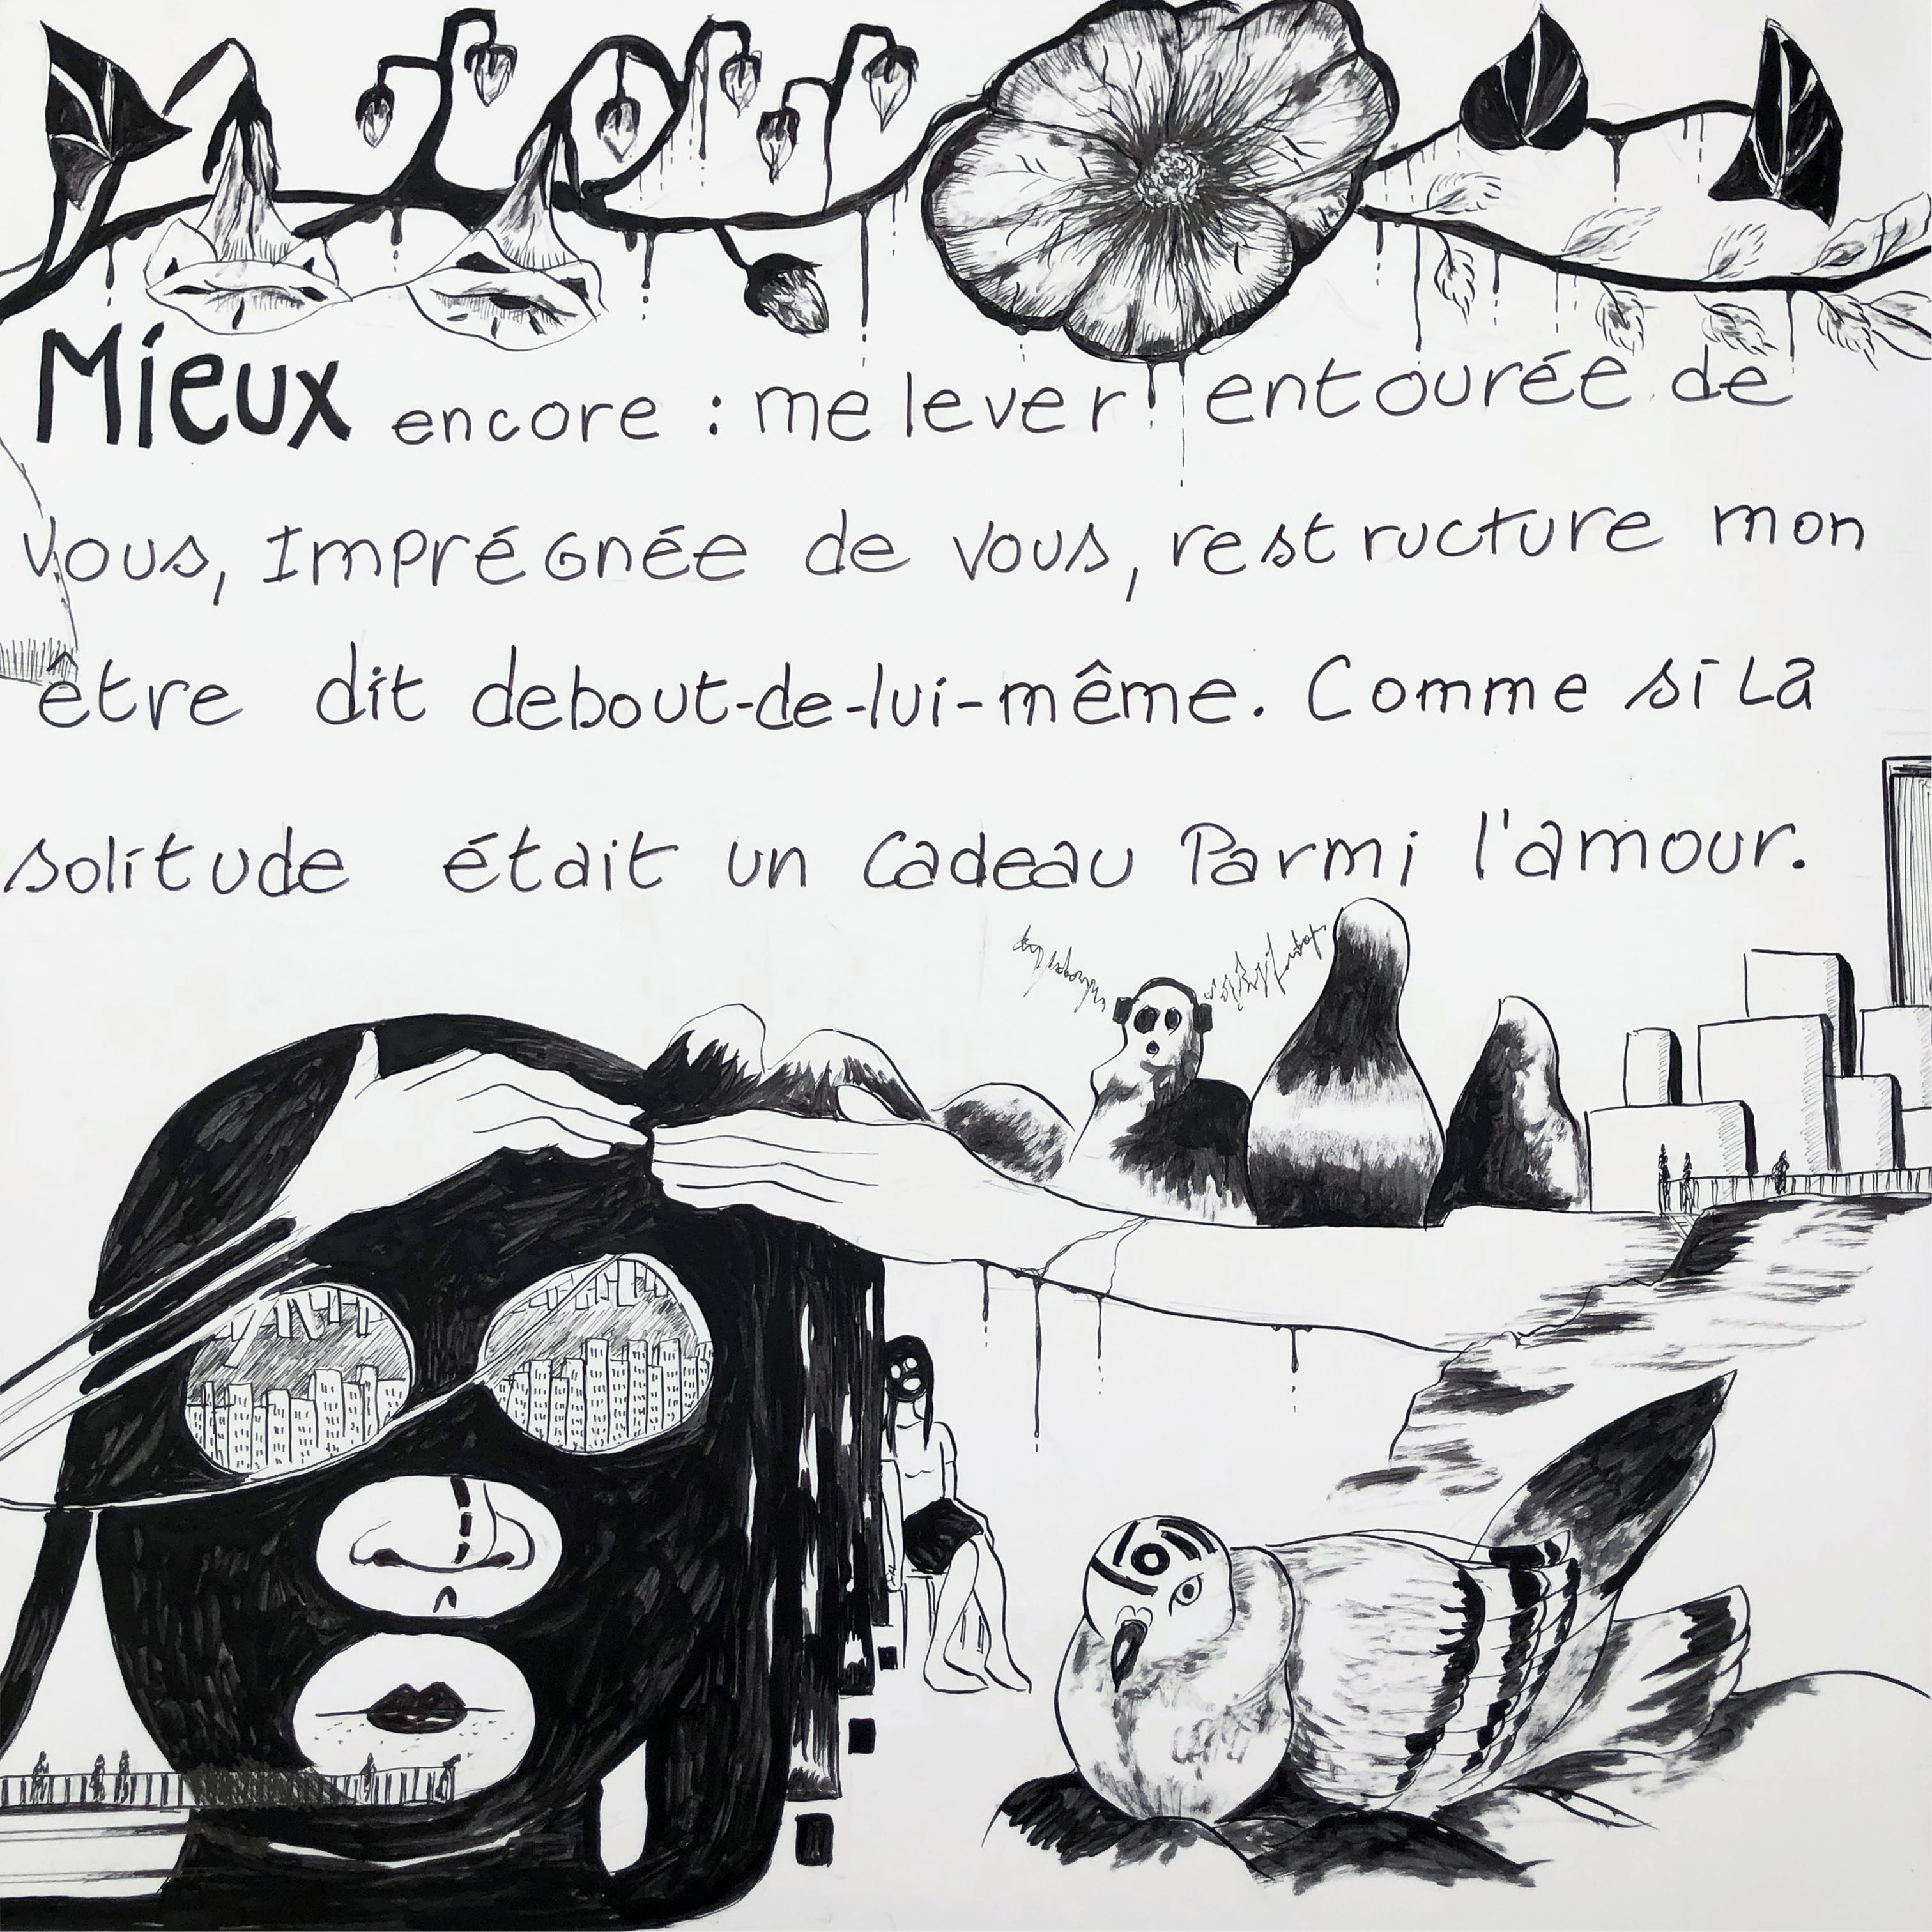 Mieux encore : me lever entourée de
vous, imprégnée de vous, restructure mon
être dit debout-de-lui-même. Comme si la
solitude était un cadeau parmi l'amour.